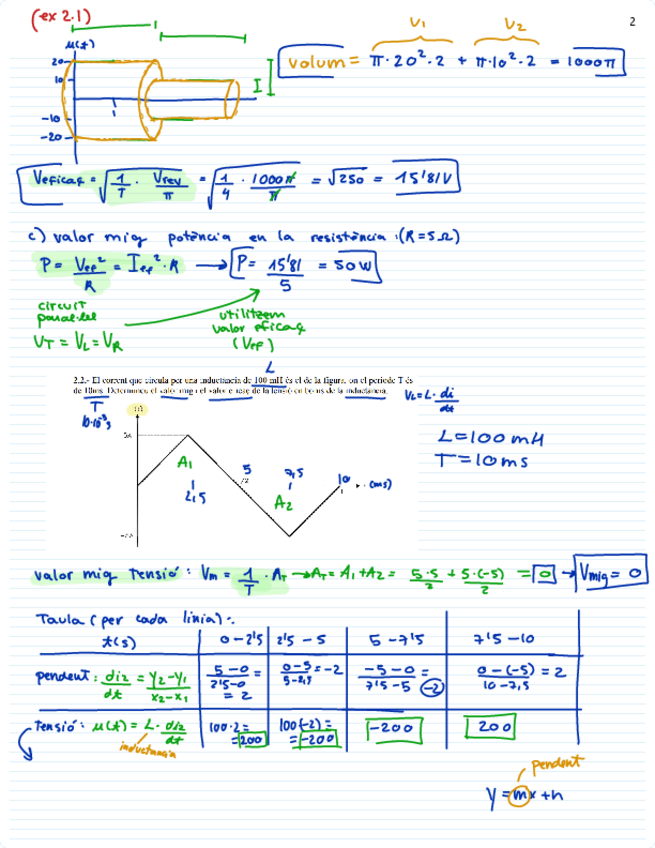 (ex 2.1)
2
V1 V2
volum = π·20²·2 + π·10²·2 = 1000π
μ(t)
20
10
-10
-20
1
I
Veficaç = √(1/T · Vrev/π) = √(1/4 · 1000π/π) = √250 = 15'81V
c) valor mig potència en la resistència: (R=5Ω)
P = Vef²/R = Ief²·R → P = 15'81/5 = 50W
circuit
paral·lel
VT = VL = VR
utilitzem
valor eficaç
(Vef)
L
2.2.- El corrent que circula per una inductancia de 100 mH és el de la figura, on el periode T és
de 10ms. Determineu el valor mig i el valor eficaç de la tensió en borns de la inductancia.
T
10·10⁻³s
VL = L·di/dt
L=100 mH
T=10ms
i(t)
5A
A1
2,5
5
T/2
7,5
A2
10
(ms)
-5A
valor mig Tensió: Vm = 1/T · AT → AT = A1 + A2 = 5·5/2 + 5·(-5)/2 = 0 → Vmig = 0
Taula (per cada línia):
t(s) 0-2'5 2'5-5 5-7'5 7'5-10
pendent: di2/dt = Y2-Y1/X2-X1 5-0/2'5-0 = 2 0-5/5-2,5 = -2 -5-0/7'5-5 = -2 0-(-5)/10-7,5 = 2
Tensió: μ(t) = L·di2/dt 100·2 = 200 100(-2) = -200 -200 200
inductancia
pendent
y = mx + n